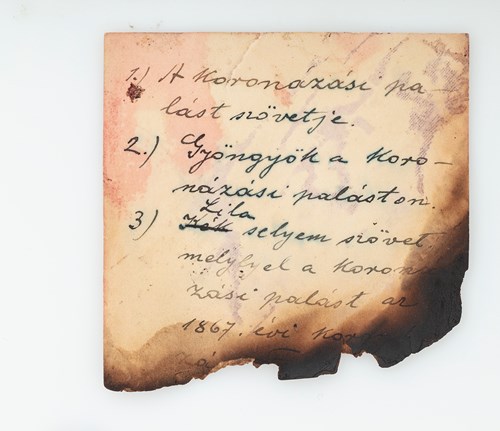 1.) A Koronázási pa-
lást szövetje.
2.) Gyöngyök a Koro-
názási palást on.
Lila
3) Kék selyem szövet
melylyel a Koron
zási palást az
1867. évi Kor
zá